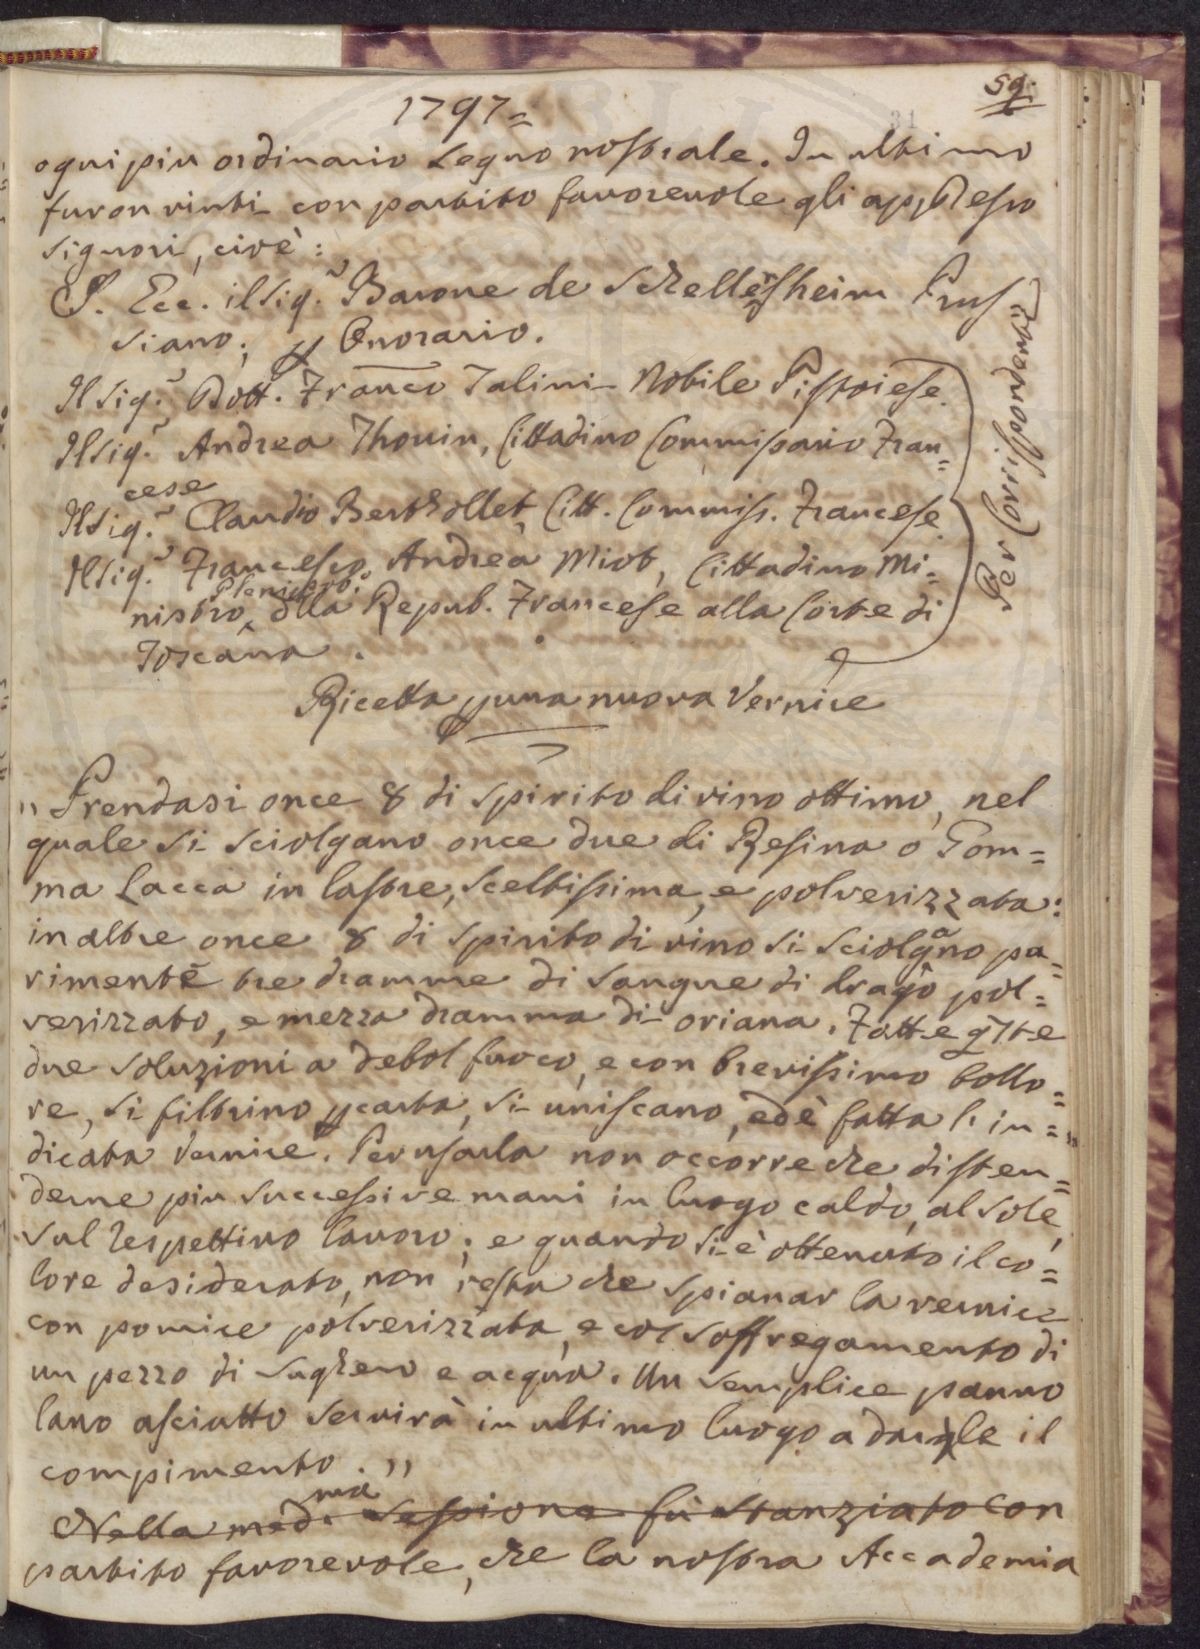 1797=
59.
31
ogni piu ordinario Legno nostrale. In ultimo
furon vinti con partito favorevole gli appresso
Signori, cioè:
S. Ecc. il Sig.r Barone de Schellesheim Prus
siano; p Onorario.
Il Sig.r Dott. Franco Talini Nobile Pistoiese.
Il Sig.r Andrea Thouin, Cittadino Commissario Fran=
cese
Il Sig.r Claudio Berthollet, Citt. Commiss. Francese.
Il Sig.r Francesco Andrea Miot, Cittadino Mi=
nistro Plenipot.o della Repub. Francese alla Corte di
Toscana.
Per Corrispondenti
Ricetta p una nuova Vernice
" Prendasi once 8 di spirito di vino ottimo, nel
quale si sciolgano once due di Resina o Gom=
ma Lacca in lastre, sceltissima, e polverizzata:
in altre once 8 di spirito di vino si sciolgano pa=
rimente tre dramme di Sangue di drago pol=
verizzato, e mezza dramma di oriana. Fatte qste
due soluzioni a debol fuoco, e con brevissimo bollo=
re, si filtrino p carta, si uniscano, ed è fatta l'in=
dicata vernice. Per usarla non occorre che disten=
derne piu successive mani in luogo caldo, al sole,
sul respettivo lavoro; e quando si è ottenuto il co=
lore desiderato, non resta che spianar la vernice
con pomice polverizzata, e col soffregamento di
un pezzo di sughero e acqua. Un semplice panno
lano asciutto servirà in ultimo luogo a darle il
compimento. "
Nella med.ma Sessione fu stanziato con
partito favorevole, che la nostra Accademia